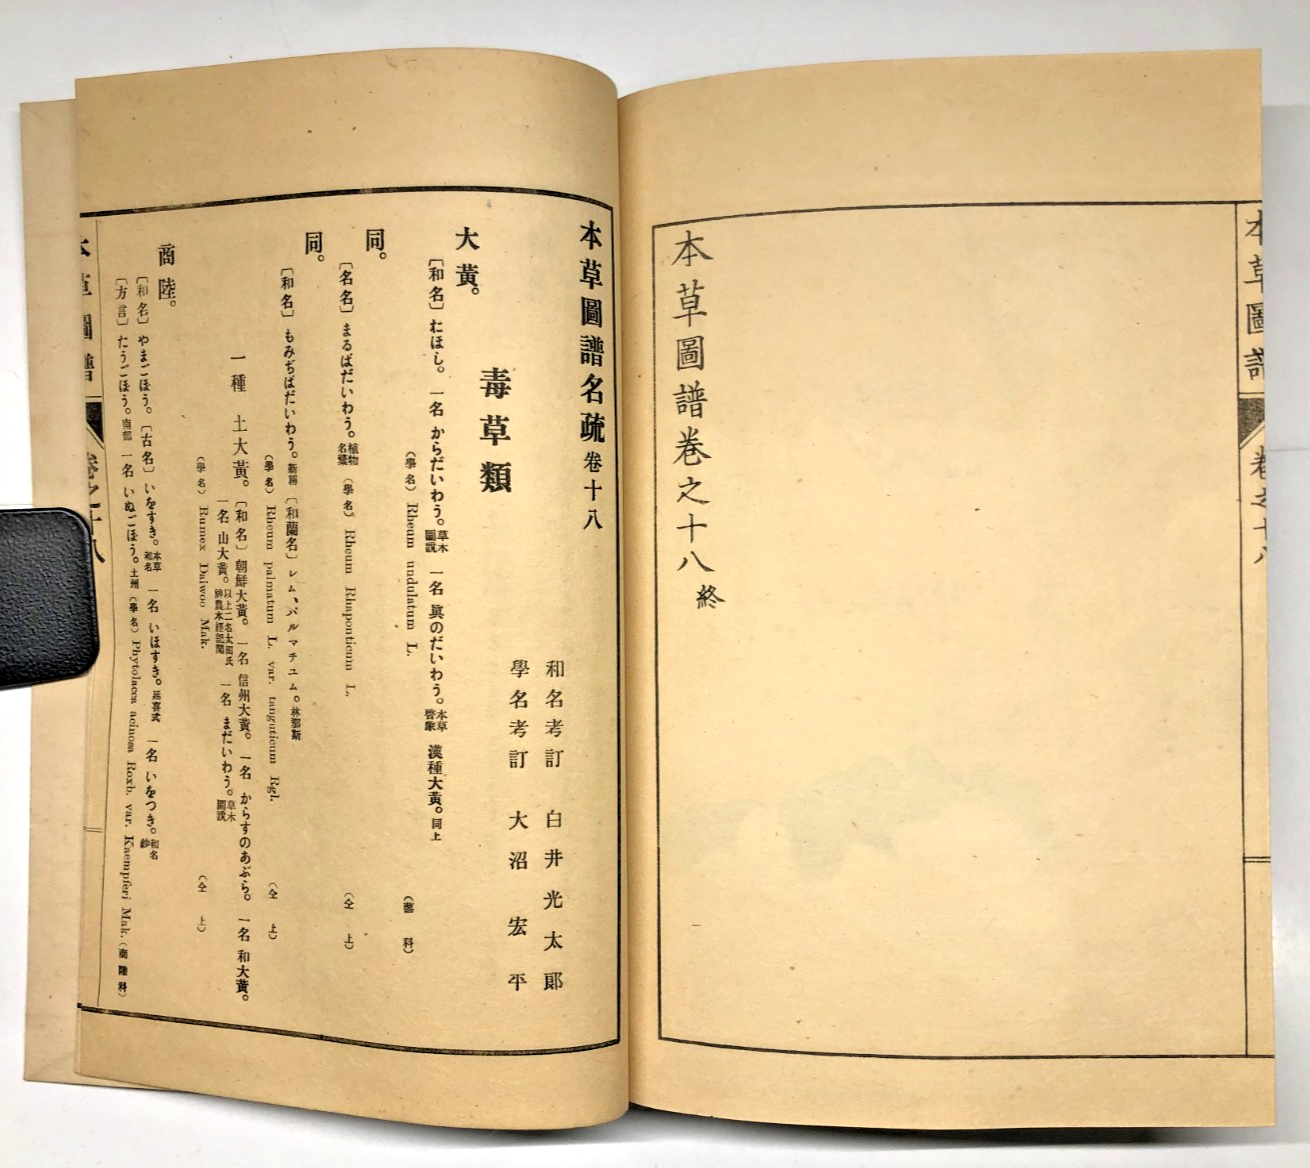 本草圖譜
卷之十八
本草圖譜卷之十八終
本草圖譜名疏卷十八
和名考訂 白井光太郎
學名考訂 大沼宏平
毒草類
大黃。
〔和名〕おほし。一名 からだいわう。草木圖説 一名 眞のだいわう。本草啓蒙 漢種大黃。同上
(學名) Rheum undulatum L. (蓼科)
同。
〔名名〕まるばだいわう。植物名彙 (學名) Rheum Rhaponticum L. (仝上)
同。
〔和名〕もみぢばだいわう。新稱 〔和蘭名〕レム、パルマチユム。林那斯
(學名) Rheum palmatum L. var. tanguticum Rgl. (仝上)
一種 土大黃。〔和名〕朝鮮大黃。一名 信州大黃。一名 からすのあぶら。一名 和大黃。
一名 山大黃。以上二名太田氏神農本經記聞 一名 まだいわう。草木圖説
(學名) Rumex Daiwoo Mak. (仝上)
商陸。
〔和名〕やまごほう。〔古名〕いをすき。本草和名 一名 いほすき。延喜式 一名 いをつき。和名鈔
〔方言〕たうごほう。南部 一名 いぬごほう。土州 (學名) Phytolacca acinosa Roxb. var. Kaempferi Mak. (商陸科)
本草圖譜
卷之十八